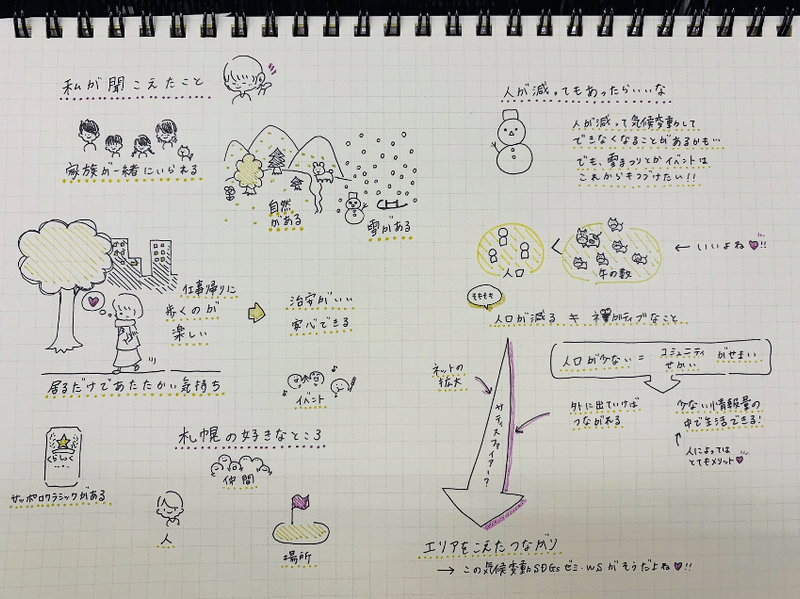 私が聞こえたこと
家族が一緒にいられる
自然
がある
雪がある
仕事帰りに
歩くのが
楽しい
治安がいい
安心できる
居るだけであたたかい気持ち
イベント
札幌の好きなところ
くらしく
サッポロクラシックがある
仲間
人
場所
人が減ってもあったらいいな
人が減って気候変動して
できなくなることがあるかも…
でも、雪まつりとかイベントは
これからもつづけたい!!
人口
<
牛の数
← いいよね!!
そもそも
人口が減る ≠ ネガティブなこと
人口が少ない = コミュニティ がせまい
せかい
ネットの
拡大
サティスファイアー?
外に出ていけば
つながれる
少ない情報量の
中で生活できる!
人によっては
とてもメリット
エリアをこえたつながり
→ この気候変動SDGsゼミ・WSがそうだよね!!